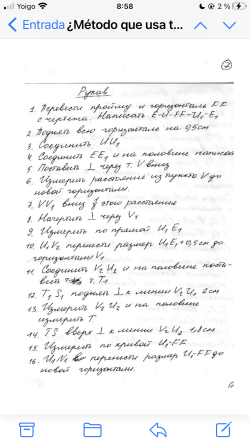 Yoigo
8:58
2 %
Entrada
¿Método que usa t...
2
Рукав
1. Перевести пройму и горизонталь FF
с чертежа. Написать E-И-FF-И₁-E₁
2. Поднять всю горизонталь на 0,5см
3. Соединить ИИ₁
4. Соединить EE₁ и на половине написать
5. Поставить ⊥ через т. V вниз
6. Измерить расстояние из пункта V до
новой горизонтали.
7. VV₁ вниз этого расстояния
8. Начертить ⊥ через V₁
9. Измерить по прямой И₁E₁
10. И₁V₂ перенести размер И₁E₁+0,5см до
горизонтали V₁
11. Соединить V₂И₂ и на половине поста-
вить т. T₁
12. T₁S₁ поднять ⊥ к линии V₂И₂ 2см
13. Измерить V₂И₂ и на половине
измерить T
14. TS вверх ⊥ к линии V₂И₂ 1,8см
15. Измерить по кривой И₁-FF
16. И₁N₁ перенести размер И₁-FF до
новой горизонтали.